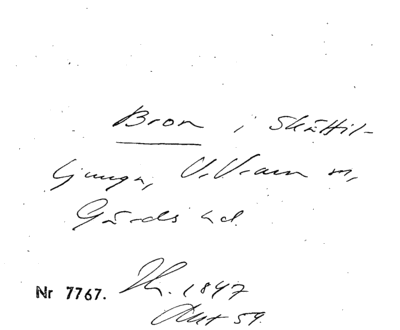 Bron i Skättil-
ljunga, V. Vram sn,
Gärds hd.
Nr 7767. 1847
Akt 59.